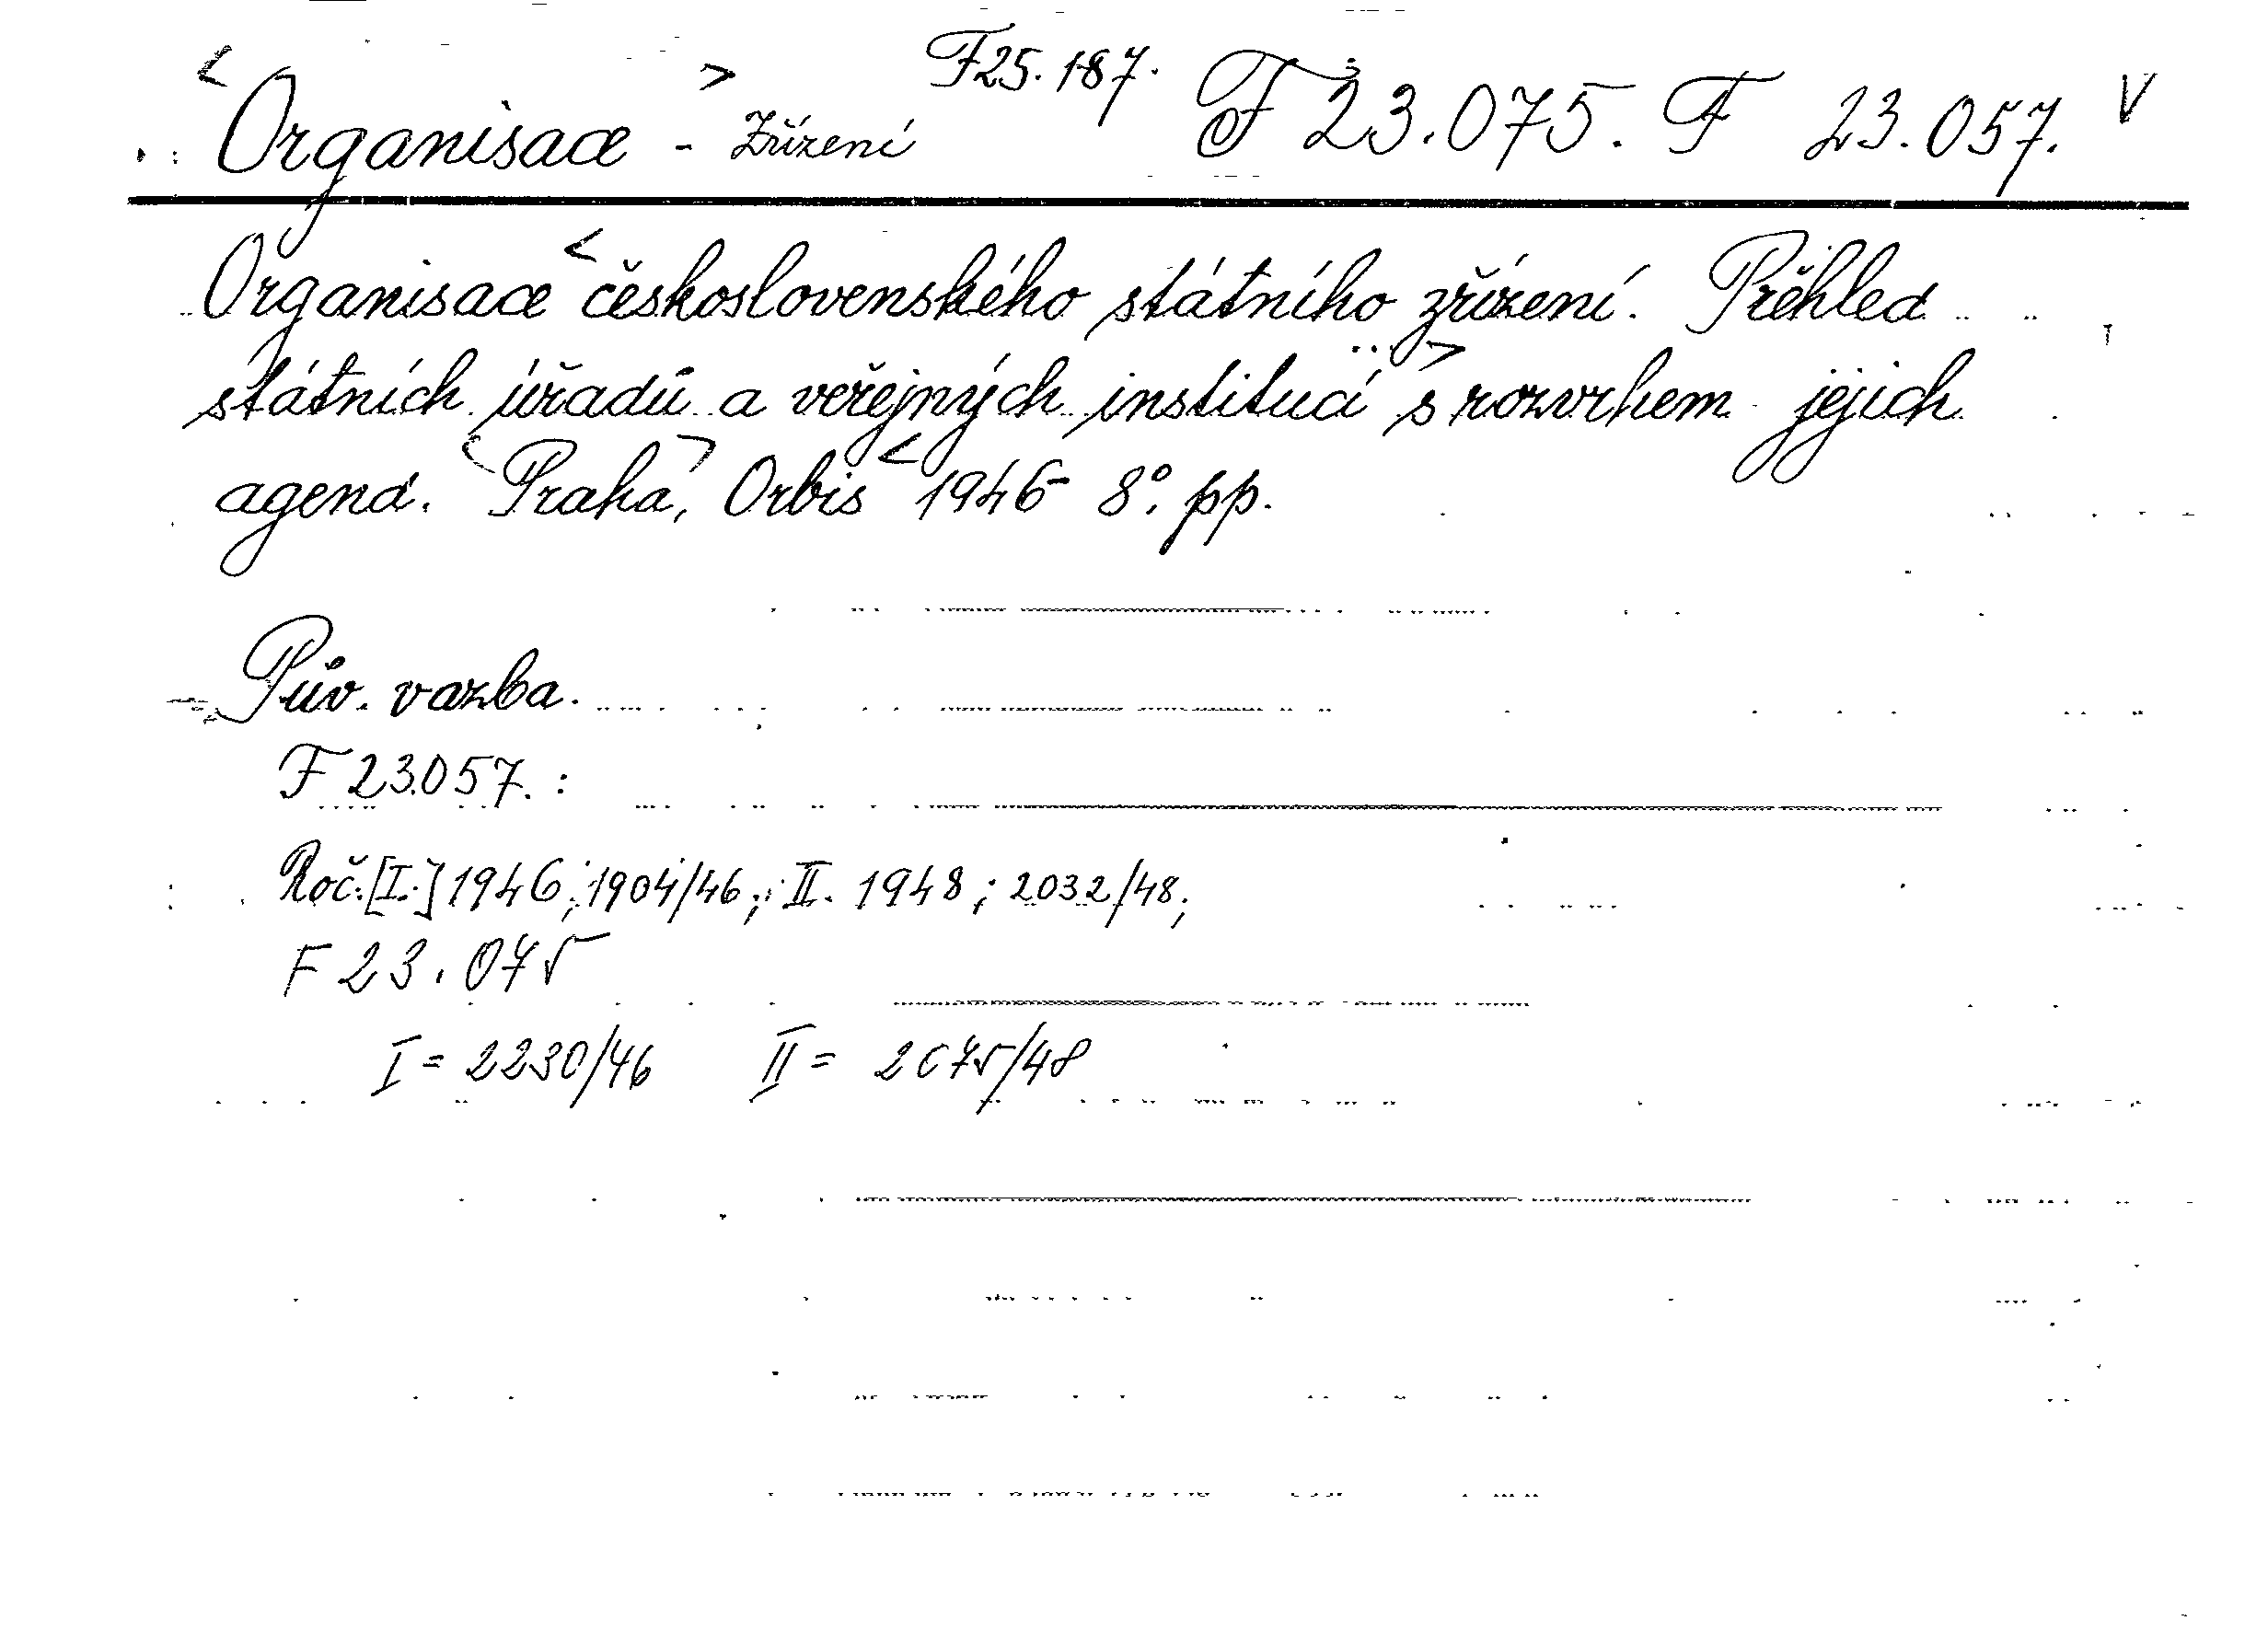 <Organisace> - Zřízení F25.187. F 23.075. F 23.057. V
Organisace <československého státního zřízení. Přehled
státních úřadů a veřejných institucí> s rozvrhem jejich
agend. <Praha,> Orbis <1946- 8°. pp.
Pův. vazba.
F 23.057. :
Roč. [I.] 1946; 1904/46; II. 1948; 2032/48;
F 23.075
I = 2230/46 II = 2075/48